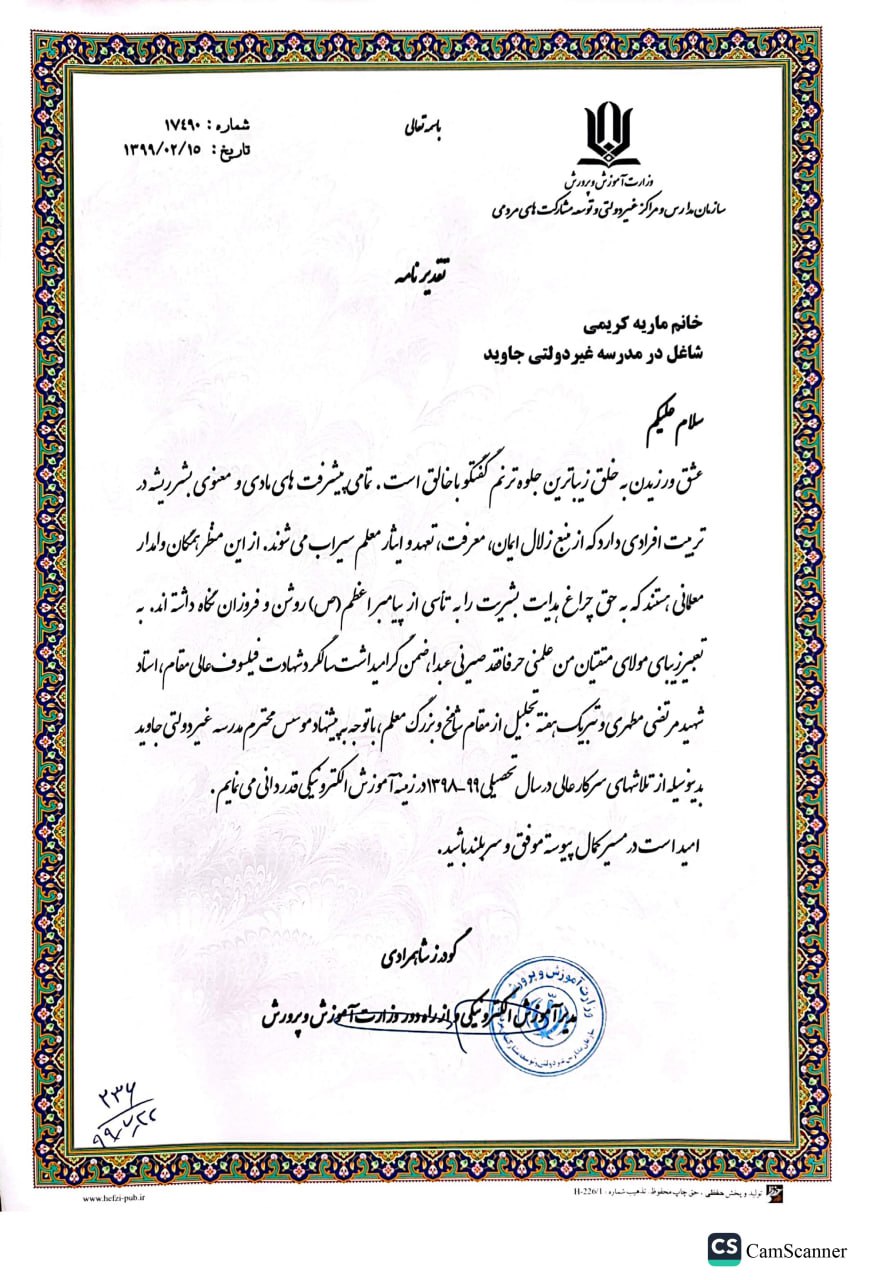 باسمه تعالی
شماره : ١٧٤٩٠
تاریخ : ١٣٩٩/٠٢/١٥
وزارت آموزش و پرورش
سازمان مدارس و مراکز غیردولتی و توسعه مشارکت های مردمی
تقدیرنامه
خانم ماریه کریمی
شاغل در مدرسه غیردولتی جاوید
سلام علیکم
عشق ورزیدن به خلق زیباترین جلوه ترنم گفتگو با خالق است . تمامی پیشرفت های مادی و معنوی بشر ریشه در
تربیت افرادی دارد که از منبع زلال ایمان، معرفت، تعهد و ایثار معلم سیراب می شوند. از این منظر همگان وامدار
معلمانی هستند که به حق چراغ هدایت بشریت را به تأسی از پیامبر اعظم (ص) روشن و فروزان نگاه داشته اند. به
تعبیر زیبای مولای متقیان من علمنی حرفا فقد صیرنی عبدا، ضمن گرامیداشت سالگرد شهادت فیلسوف عالی مقام، استاد
شهید مرتضی مطهری و تبریک هفته تجلیل از مقام شامخ و بزرگ معلم، با توجه به پیشنهاد موسس محترم مدرسه غیردولتی جاوید
بدینوسیله از تلاشهای سرکار عالی در سال تحصیلی ٩٩-١٣٩٨ در زمینه آموزش الکترونیکی قدردانی می نمایم .
امید است در مسیر کمال پیوسته موفق و سربلند باشید.
گودرز شاهمرادی
مدیر آموزش الکترونیکی و از راه دور وزارت آموزش و پرورش
وزارت آموزش و پرورش
۲۳۶
www.hefzi-pub.ir
تولید و پخش حفظی ، حق چاپ محفوظ. تذهیب شماره : H-226/1
CS CamScanner